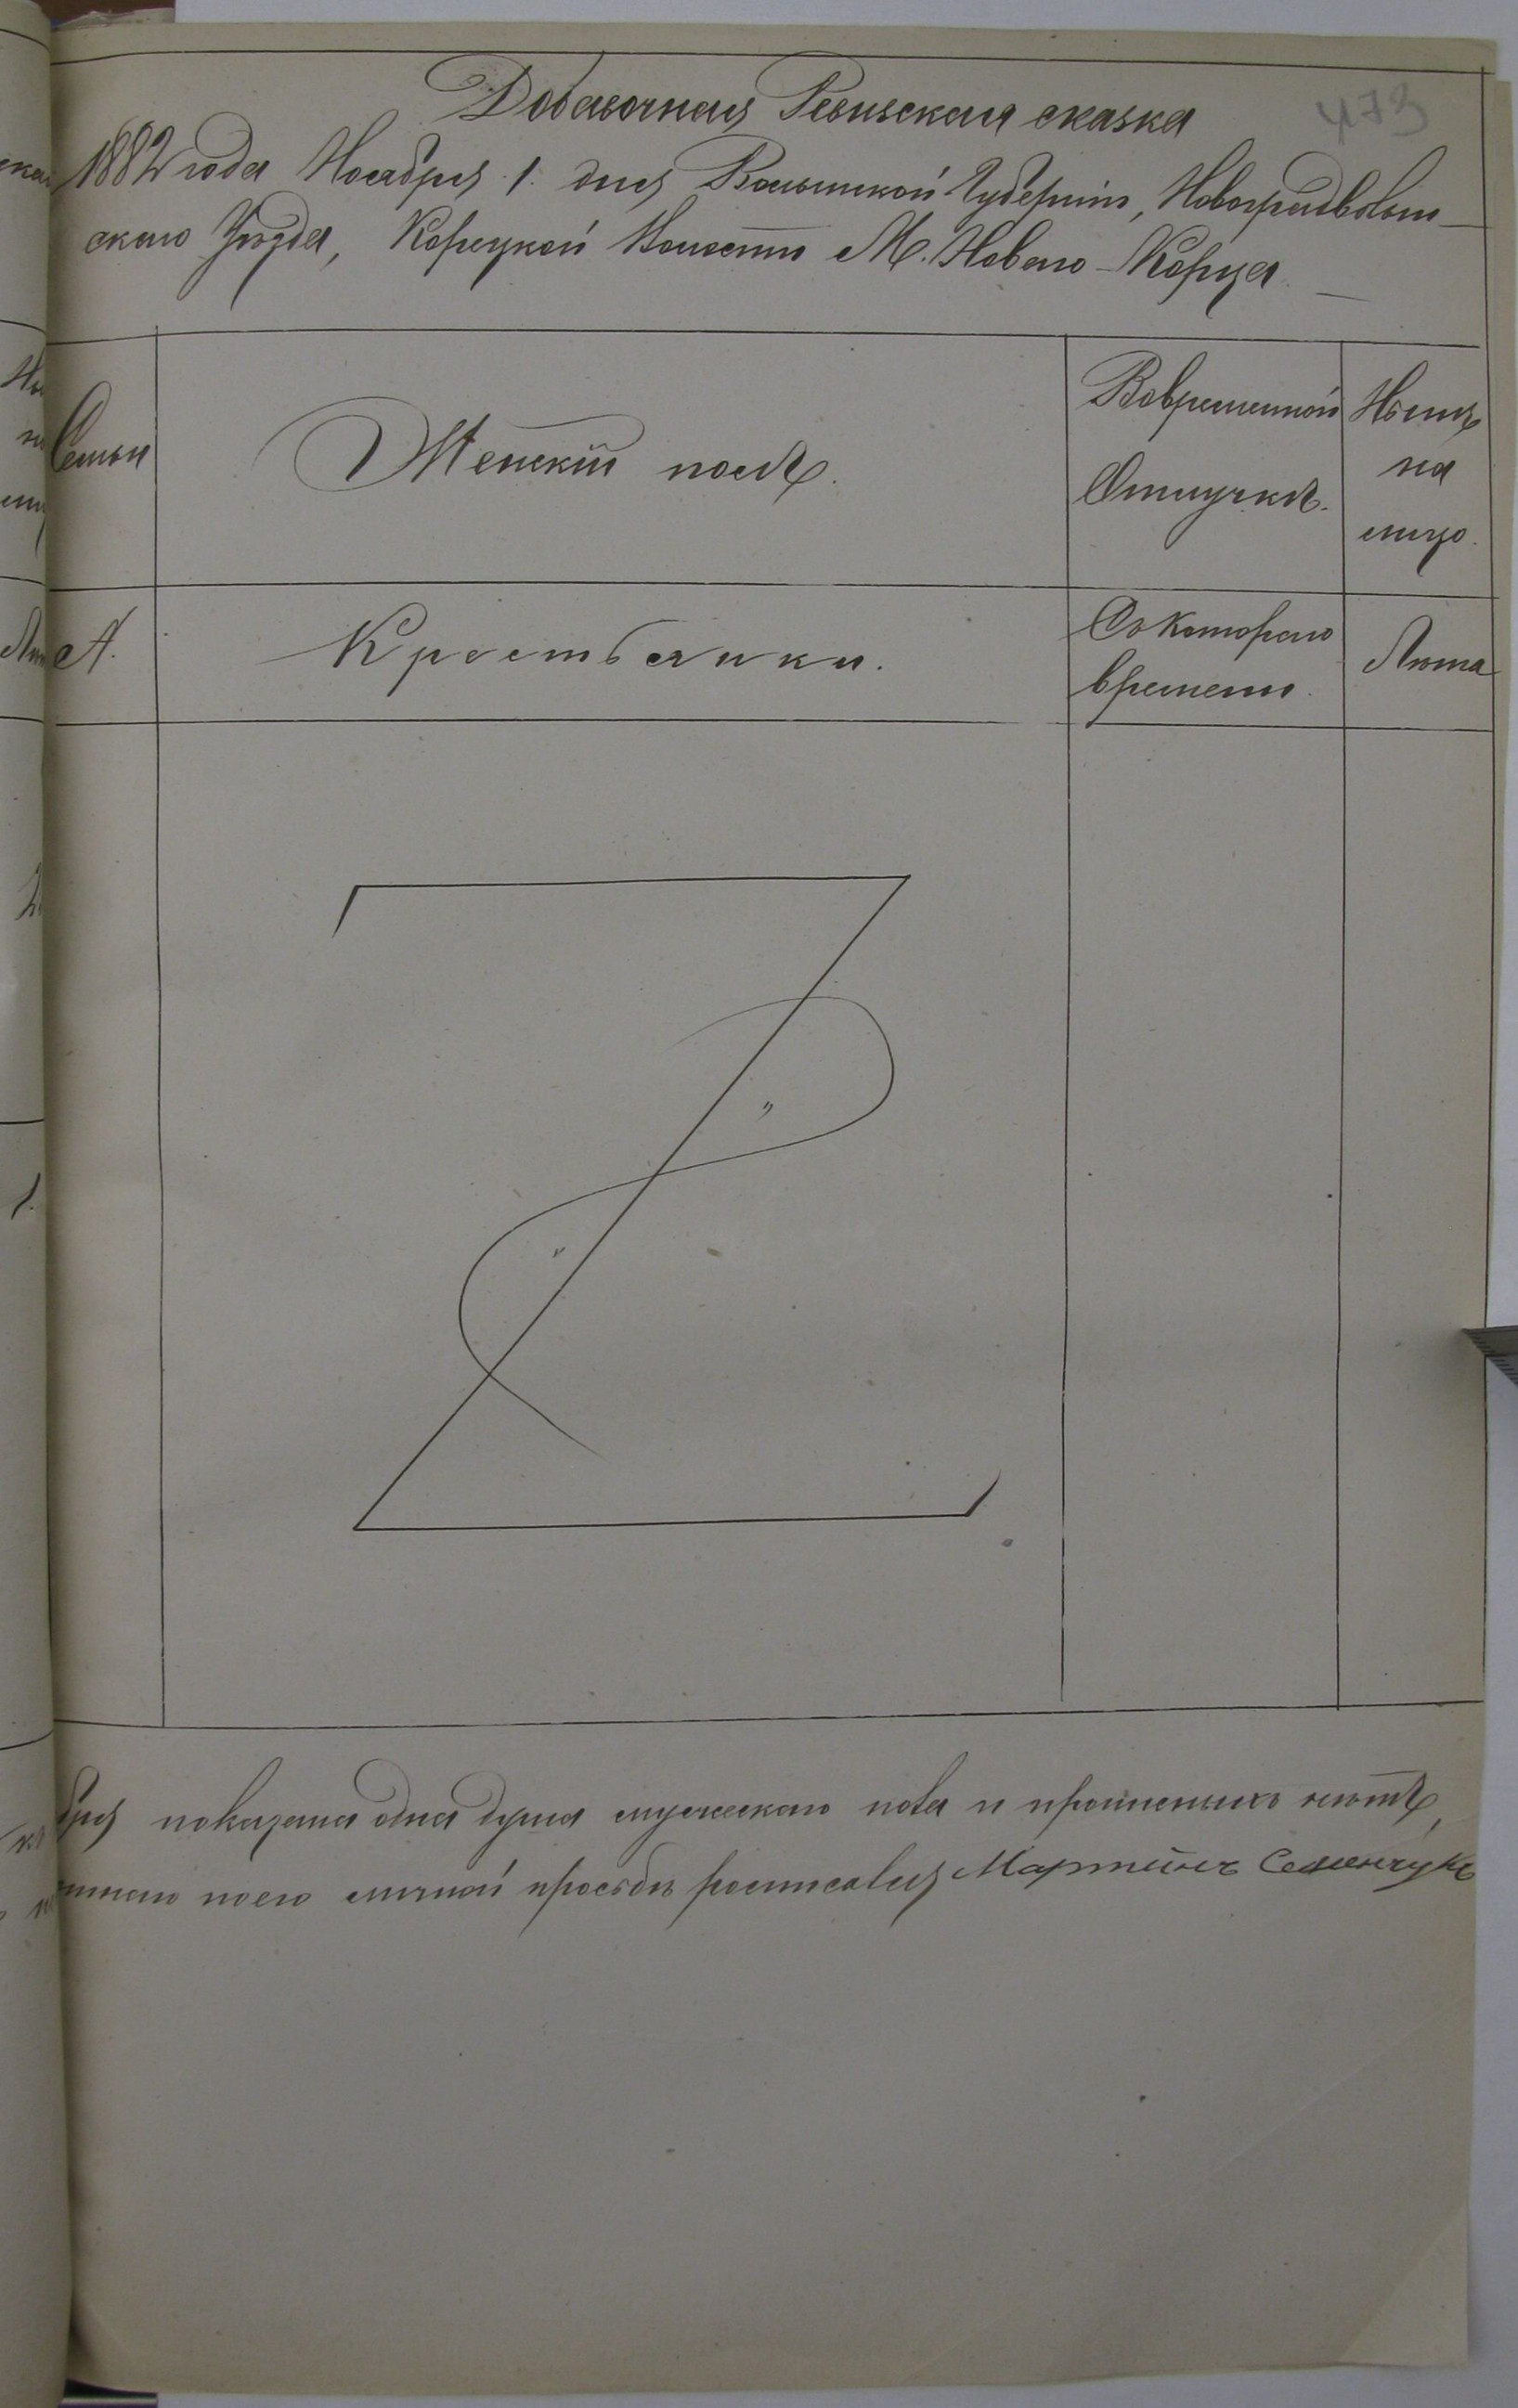 473
Добавочная Ревизская сказка
1882 года Ноября 1. дня Волынской Губерніи, Новоградволын-
скаго Уѣзда, Корецкой Волости М. Новаго-Корца
Семьи
Женскій полъ.
Вовременной
Отлучкѣ.
Нынѣ
на
лицо.
А.
Крестьянки.
Съ Котораго
времени.
Лѣта
бря показана одна душа мужескаго пола и прописныхъ нѣтъ,
по его личной просьбѣ росписался Мартынъ Семенчукъ